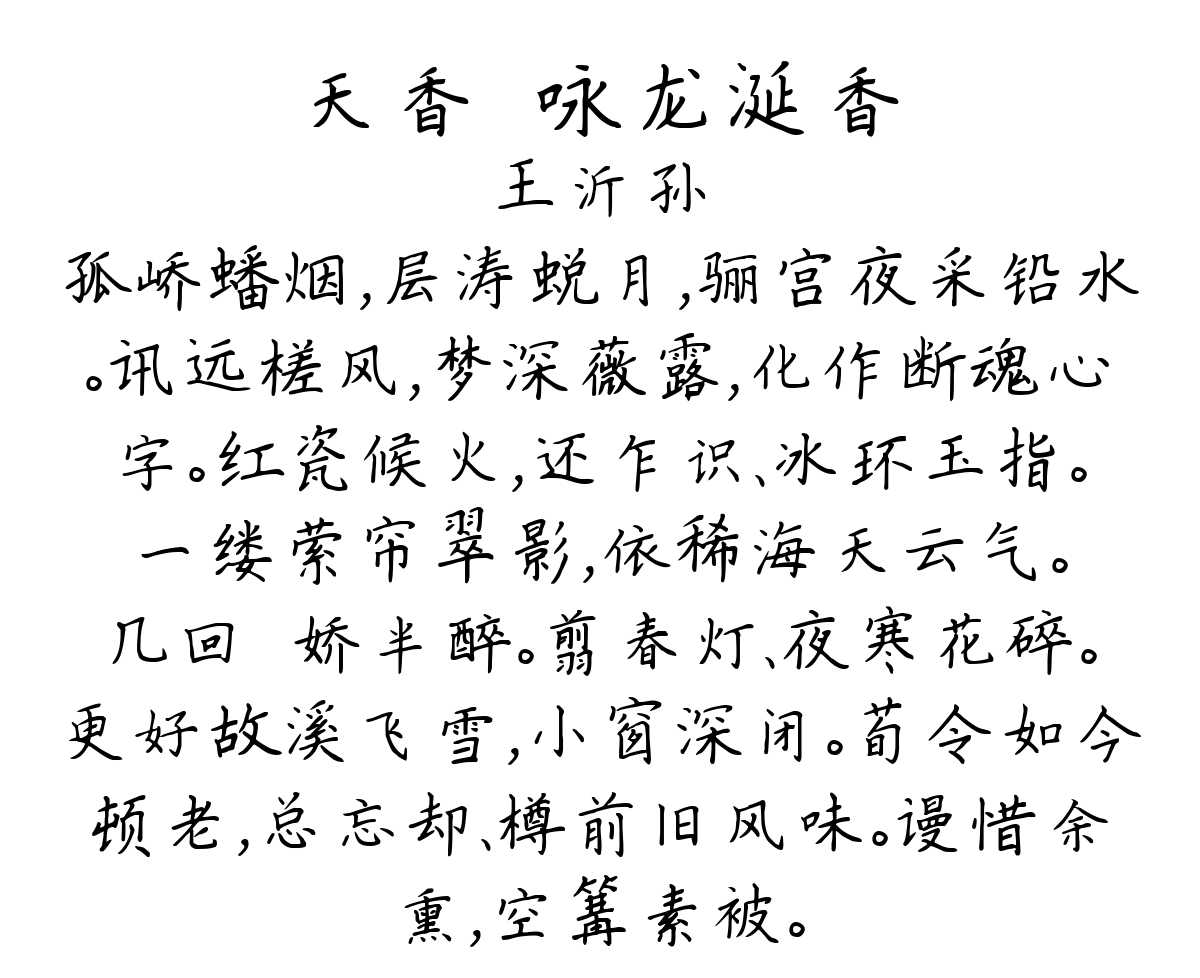 天香 咏龙涎香
王沂孙
孤峤蟠烟,层涛蜕月,骊宫夜采铅水
。讯远槎风,梦深薇露,化作断魂心
字。红瓷候火,还乍识、冰环玉指。
一缕萦帘翠影,依稀海天云气。
几回 娇半醉。翦春灯、夜寒花碎。
更好故溪飞雪,小窗深闭。荀令如今
顿老,总忘却、樽前旧风味。谩惜余
熏,空篝素被。